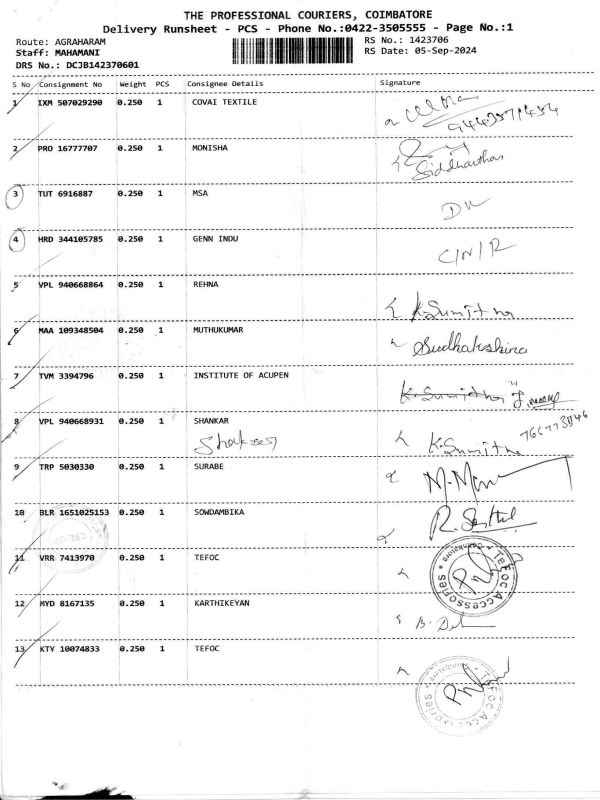 THE PROFESSIONAL COURIERS, COIMBATORE
Delivery Runsheet - PCS - Phone No.:0422-3505555 - Page No.:1
Route: AGRAHARAM
Staff: MAHAMANI
DRS No.: DCJB142370601
RS No.: 1423706
RS Date: 05-Sep-2024
S No Consignment No Weight PCS Consignee Details Signature
1 IXM 507029290 0.250 1 COVAI TEXTILE
2 PRO 16777707 0.250 1 MONISHA
Siddharthan
3 TUT 6916887 0.250 1 MSA
4 HRD 344105785 0.250 1 GENN INDU
5 VPL 940668864 0.250 1 REHNA K.Sumithra
6 MAA 109348504 0.250 1 MUTHUKUMAR
7 TVM 3394796 0.250 1 INSTITUTE OF ACUPEN
8 VPL 940668931 0.250 1 SHANKAR K.Sumithra
9 TRP 5030330 0.250 1 SURABE
10 BLR 1651025153 0.250 1 SOWDAMBIKA
11 VRR 7413970 0.250 1 TEFOC
TeFoc Accessories * Coimbatore *
12 MYD 8167135 0.250 1 KARTHIKEYAN
13 KTY 10074833 0.250 1 TEFOC
TeFoc Accessories * Coimbatore *